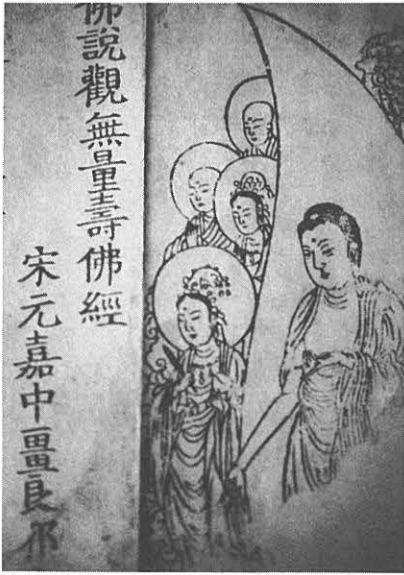 佛說觀無量壽佛經
宋元嘉中畺良耶